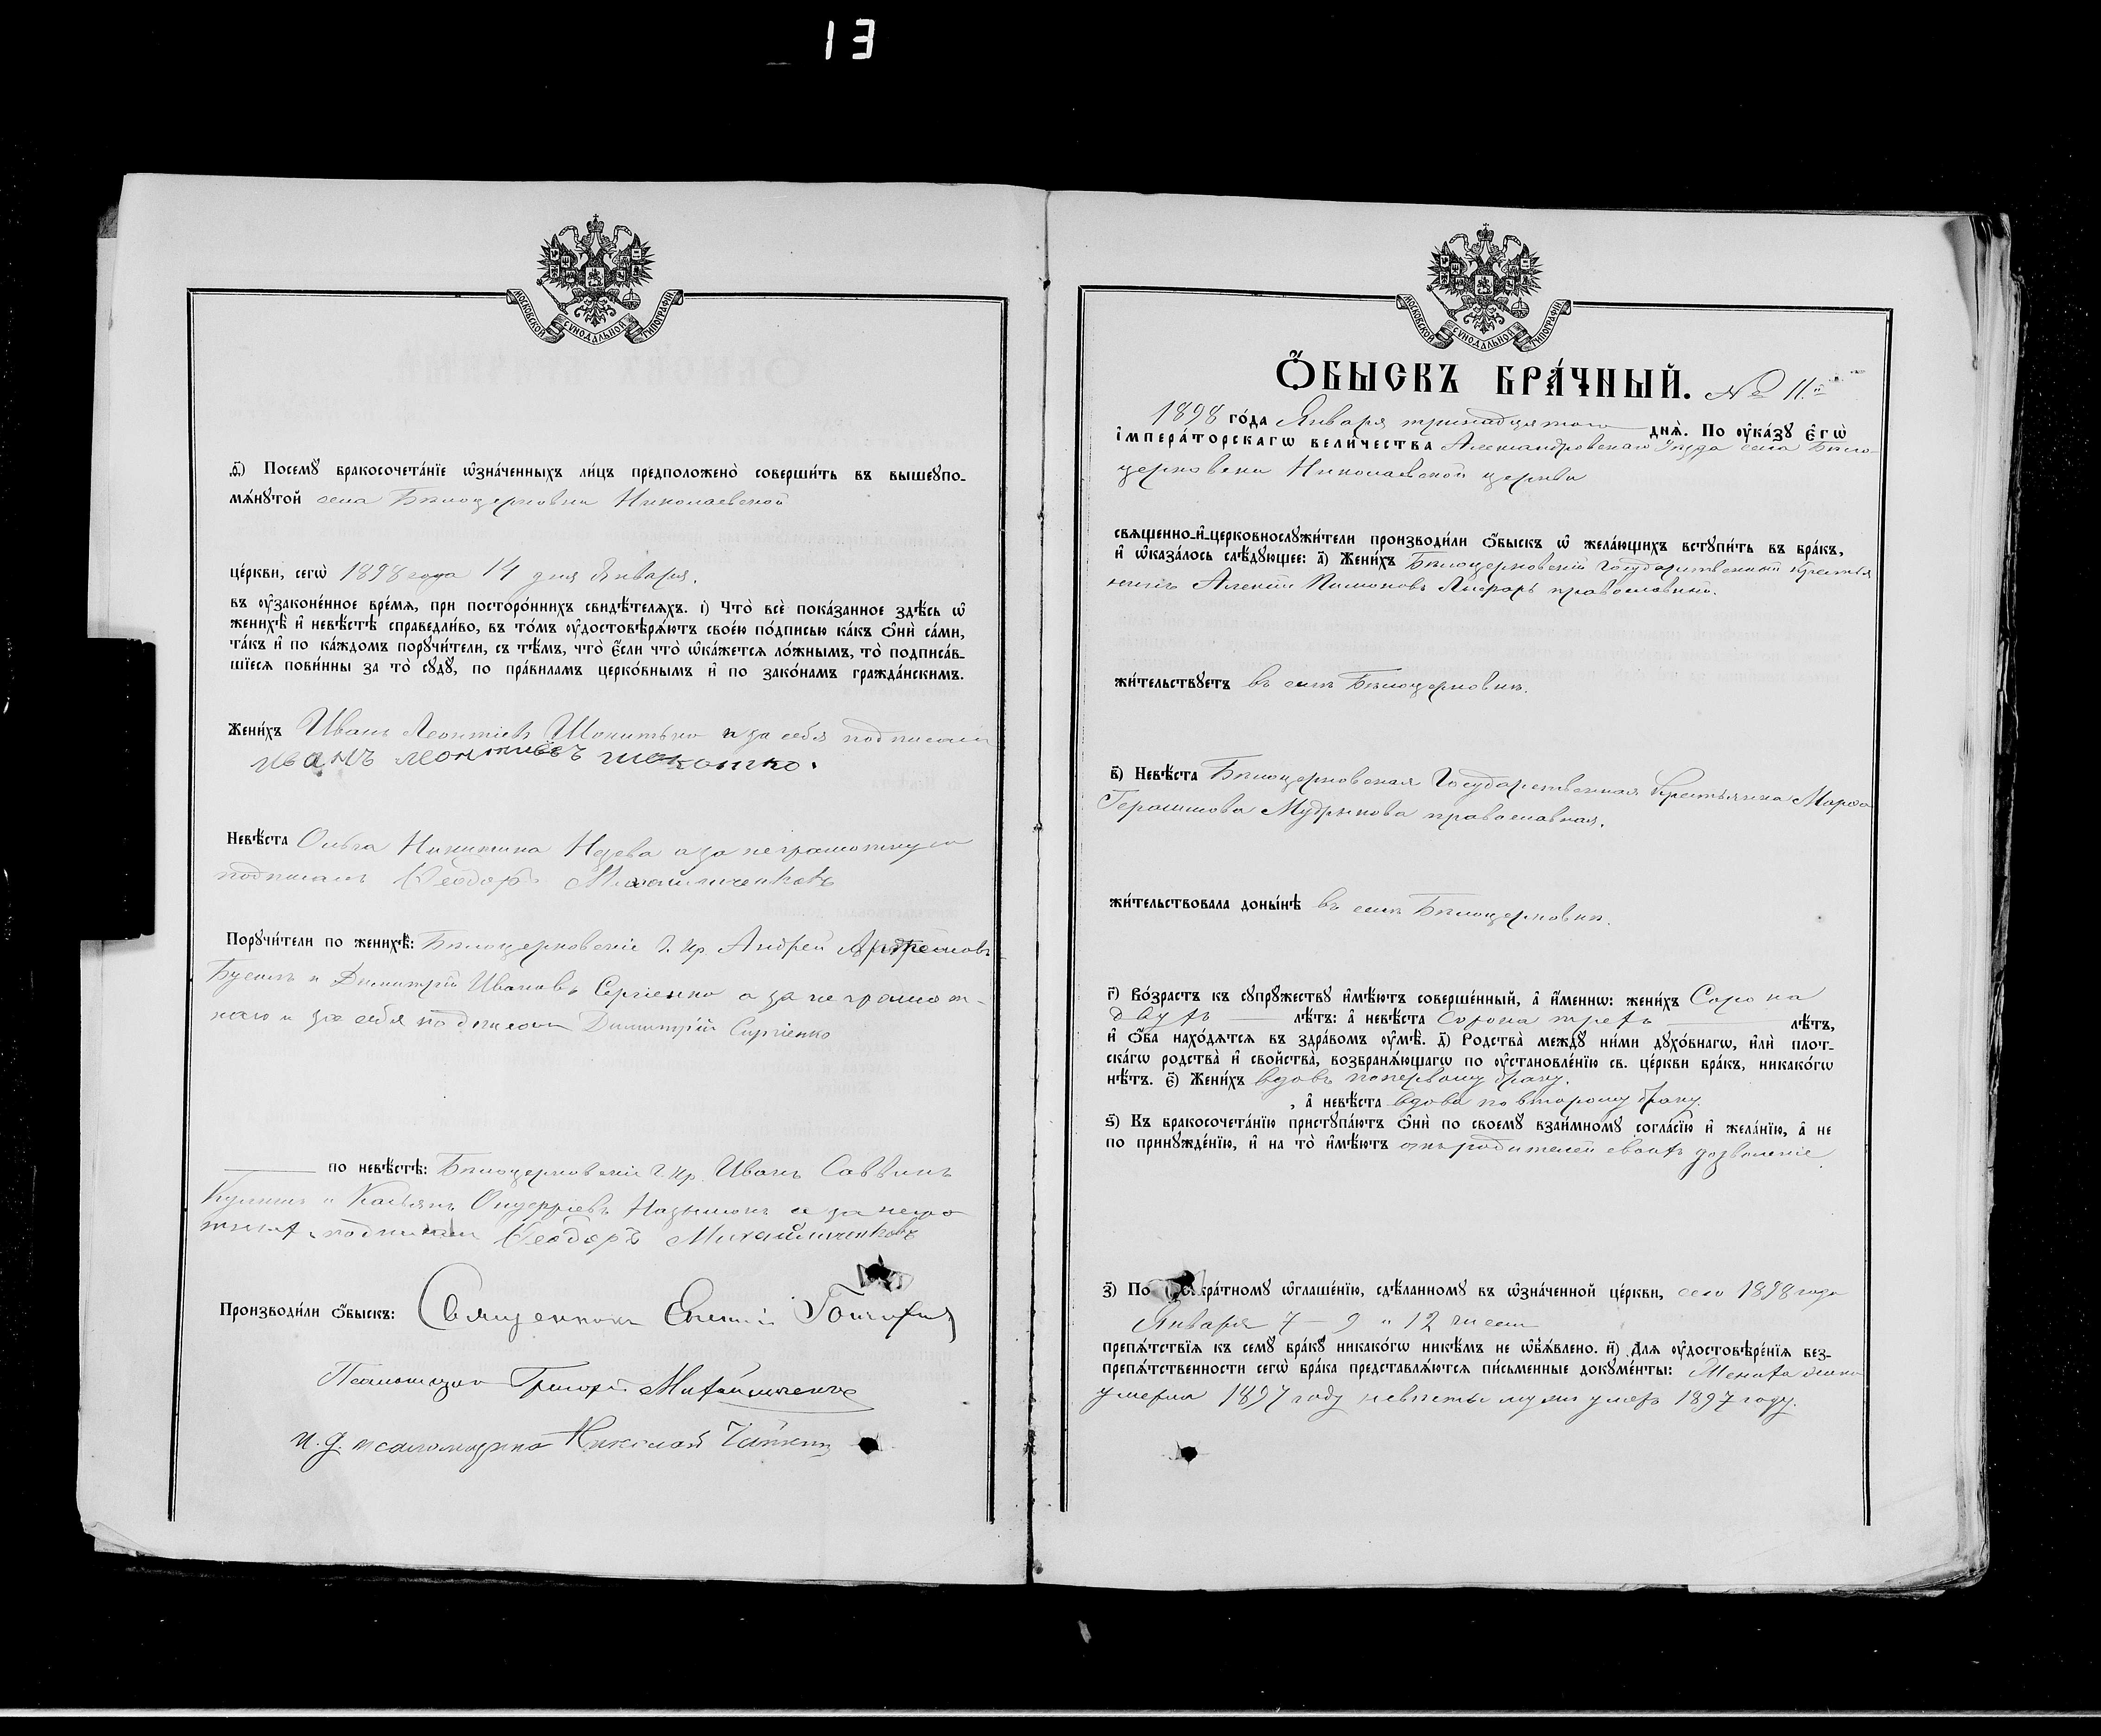 13
МОСКОВСКОЙ СѴНОДАЛЬНОЙ ТИПОГРАФІИ
Ѳ҃) Посемꙋ̀ бракосочета́нїе ѡ҆зна́ченныхъ ли́цъ предположено̀ соверши́ть въ вышеꙋпо-
мѧ́нꙋтой села Бѣлоцерковки Николаевской
це́ркви, сегѡ̀ 1898 года 14 дня Января.
въ ᲂу҆законе́нное вре́мѧ, при посторо́ннихъ свидѣ́телѧхъ. і҃) Что̀ всѐ пока́занное здѣ́сь ѡ҆
женихѣ̀ и҆ невѣ́стѣ справедли́во, въ то́мъ ᲂу҆достовѣрѧ́ютъ свое́ю по́дписью ка́къ ѻ҆нѝ са́ми,
та́къ и҆ по ка́ждомъ порꙋчи́тели, съ тѣ́мъ, что̀ є҆́сли что̀ ѡ҆ка́жетсѧ ло́жнымъ, то̀ подписа́в-
шїесѧ пови́нны за то̀ сꙋдꙋ̀, по пра́виламъ церко́внымъ и҆ по зако́намъ гражда́нскимъ.
Жени́хъ Иванъ Леонтіевъ и за себя подписал
иванъ леонтиевъ
Невѣ́ста Ольга Никитина а за неграмотную
подписалъ Ѳеодоръ Михайличенковъ
Порꙋчи́тели по женихѣ̀: Бѣлоцерковскіе Г. кр. Андрей
и Димитрій Ивановъ Сергіенко а за неграмот-
наго и за себя подписал Димитрій Сергіенко
по невѣ́стѣ: Бѣлоцерковскіе Г. кр. Иванъ Саввинъ
и Касьянъ а за негро
подписалъ Ѳеодоръ Михайличенковъ
Производи́ли ѻ҆́быскъ: Священникъ
Псаломщикъ Григорій Михайличенко
и. д. псаломщика Николай
МОСКОВСКОЙ СѴНОДАЛЬНОЙ ТИПОГРАФІИ
Ѻ҆́БЫСКЪ БРА́ЧНЫЙ. № 11.й
1898 го́да Января тринадцатого днѧ̀. По ᲂу҆ка́зꙋ є҆гѡ̀
і҆мпера́торскагѡ вели́чества Александровскаго Уѣзда села Бѣло-
церковки Николаевской церкви
свѧщенно-и҆-церковнослꙋжи́тели производи́ли ѻ҆́быскъ ѡ҆ жела́ющихъ встꙋпи́ть въ бра́къ,
и҆ ѡ҆каза́лось слѣ́дꙋющее: а҃) Жени́хъ Бѣлоцерковскій Государственный крестья
нинъ Алексій православный.
жи́тельствꙋетъ въ селѣ Бѣлоцерковкѣ.
в҃) Невѣ́ста Бѣлоцерковская Государственная Крестьянка Марѳа
Герасимова православная.
жи́тельствовала доны́нѣ въ селѣ Бѣлоцерковкѣ.
г҃) Во́зрастъ къ сꙋпрꙋ́жествꙋ и҆мѣ́ютъ соверше́нный, а҆ и҆́менно: жени́хъ Сорока
двухъ лѣ́тъ: а҆ невѣ́ста сорока трехъ лѣ́тъ,
и҆ ѻ҆́ба нахо́дѧтсѧ въ здра́вомъ ᲂу҆мѣ̀. д҃) Родства̀ междꙋ̀ ни́ми дꙋхо́внагѡ, и҆лѝ плот-
ска́гѡ родства̀ и҆ свойства̀, возбранѧ́ющагѡ по ᲂу҆становле́нїю св. це́ркви бра́къ, никако́гѡ
нѣ́тъ. є҃) Жени́хъ вдовъ по первому браку.
, а҆ невѣ́ста вдова по второму браку.
ѕ҃) Къ бракосочета́нїю пристꙋпа́ютъ ѻ҆нѝ по своемꙋ̀ взаи́мномꙋ согла́сїю и҆ жела́нїю, а҆ не
по принꙋжде́нїю, и҆ на то̀ и҆мѣ́ютъ отъ родителей своихъ дозволеніе.
з҃) По кра́тномꙋ ѡ҆глаше́нїю, сдѣ́ланномꙋ въ ѡ҆зна́ченной це́ркви, сего 1898 года
Января 7 – 9 и 12 чиселъ
препѧ́тствїѧ къ семꙋ̀ бра́кꙋ никако́гѡ никѣ́мъ не ѡ҆б̾ѧ́влено. и҃) Длѧ ᲂу҆достовѣре́нїѧ без-
препѧ́тственности сегѡ̀ бра́ка представлѧ́ютсѧ пи́сьменные докꙋме́нты: Жениха жена
умерла 1897 году невѣсты мужъ умеръ 1897 году.